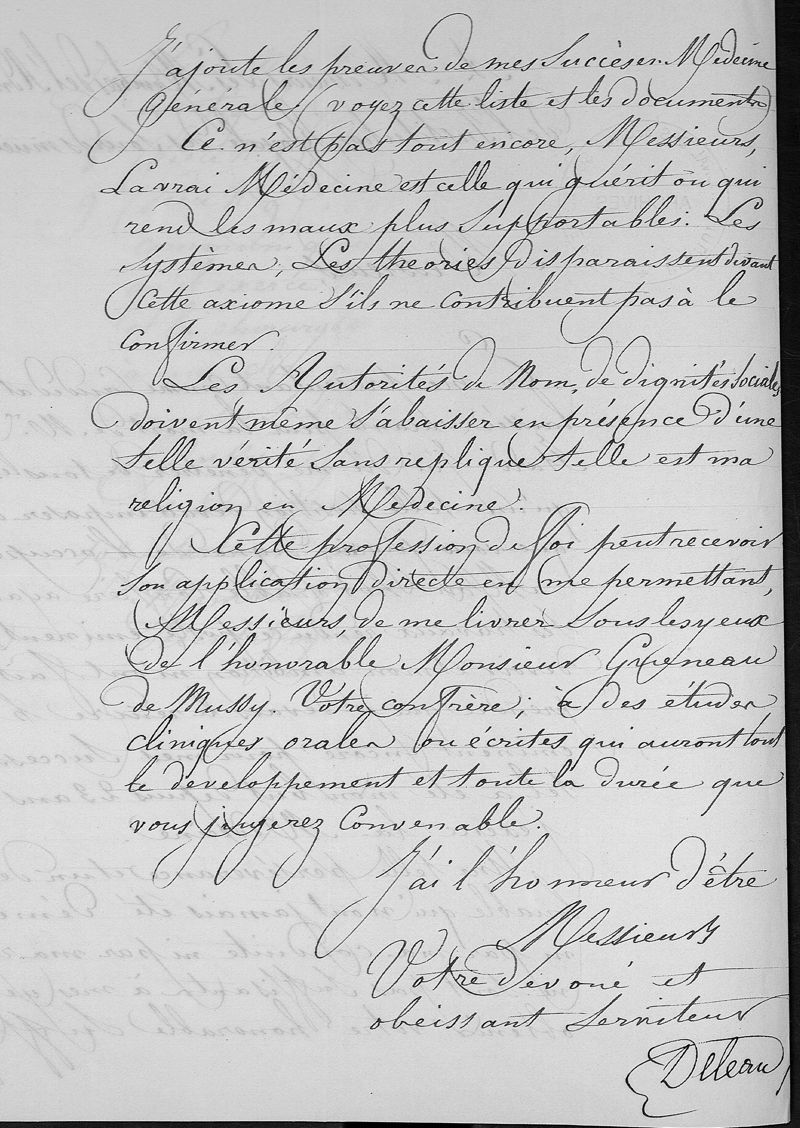 J'ajoute les preuves de mes succès en Médecine
générale (voyez cette liste et les documents)
Ce n'est pas tout encore, Messieurs,
La vrai Médecine est celle qui guérit ou qui
rend les maux plus supportables. Les
systèmes, Les théories disparaissent devant
cette axiome s'ils ne contribuent pas à le
confirmer.
Les Autorités de Nom, de dignités sociales
doivent même s'abaisser en présence d'une
telle vérité sans replique telle est ma
religion en Medecine.
Cette profession de foi peut recevoir
son application directe en me permettant,
Messieurs, de me livrer sous les yeux
de l'honorable Monsieur Gueneau
de Mussy. Votre confrère; à des études
cliniques orales ou écrites qui auront tout
le developpement et toute la durée que
vous jugerez convenable.
J'ai l'honneur d'être
Messieurs
Votre dévoué et
obeissant serviteur
Deleau